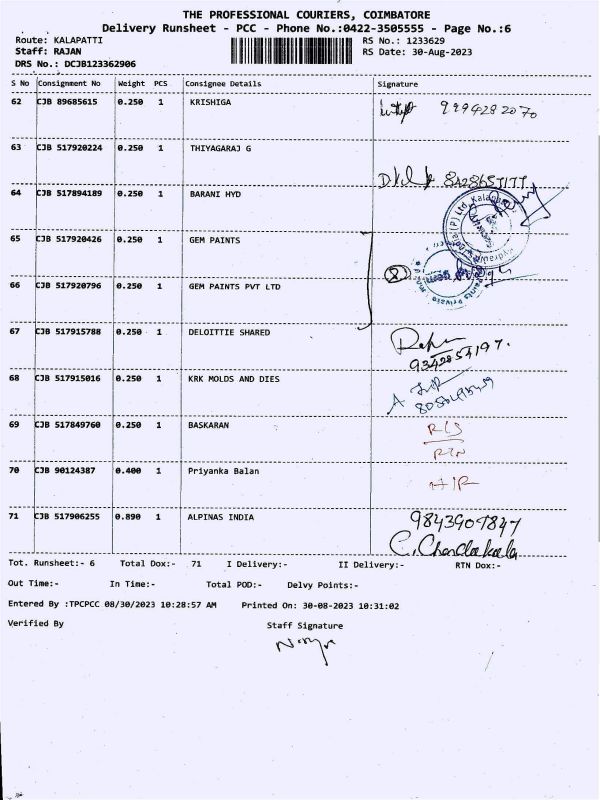 THE PROFESSIONAL COURIERS, COIMBATORE
Delivery Runsheet - PCC - Phone No.:0422-3505555 - Page No.:6
Route: KALAPATTI RS No.: 1233629
Staff: RAJAN RS Date: 30-Aug-2023
DRS No.: DCJB123362906
S No Consignment No Weight PCS Consignee Details Signature
62 CJB 89685615 0.250 1 KRISHIGA 9994282070
63 CJB 517920224 0.250 1 THIYAGARAJ G
64 CJB 517894189 0.250 1 BARANI HYD
65 CJB 517920426 0.250 1 GEM PAINTS
66 CJB 517920796 0.250 1 GEM PAINTS PVT LTD
67 CJB 517915788 0.250 1 DELOITTIE SHARED
68 CJB 517915016 0.250 1 KRK MOLDS AND DIES
69 CJB 517849760 0.250 1 BASKARAN
70 CJB 90124387 0.400 1 Priyanka Balan
71 CJB 517906255 0.890 1 ALPINAS INDIA 9843907847
C. Chandrakala
Tot. Runsheet:- 6 Total Dox:- 71 I Delivery:- II Delivery:- RTN Dox:-
Out Time:- In Time:- Total POD:- Delvy Points:-
Entered By :TPCPCC 08/30/2023 10:28:57 AM Printed On: 30-08-2023 10:31:02
Verified By Staff Signature